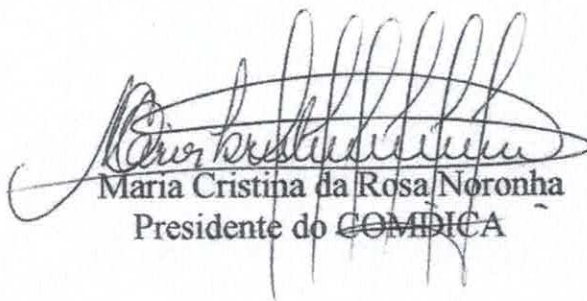 Maria Cristina da Rosa Noronha
Presidente do COMDICA